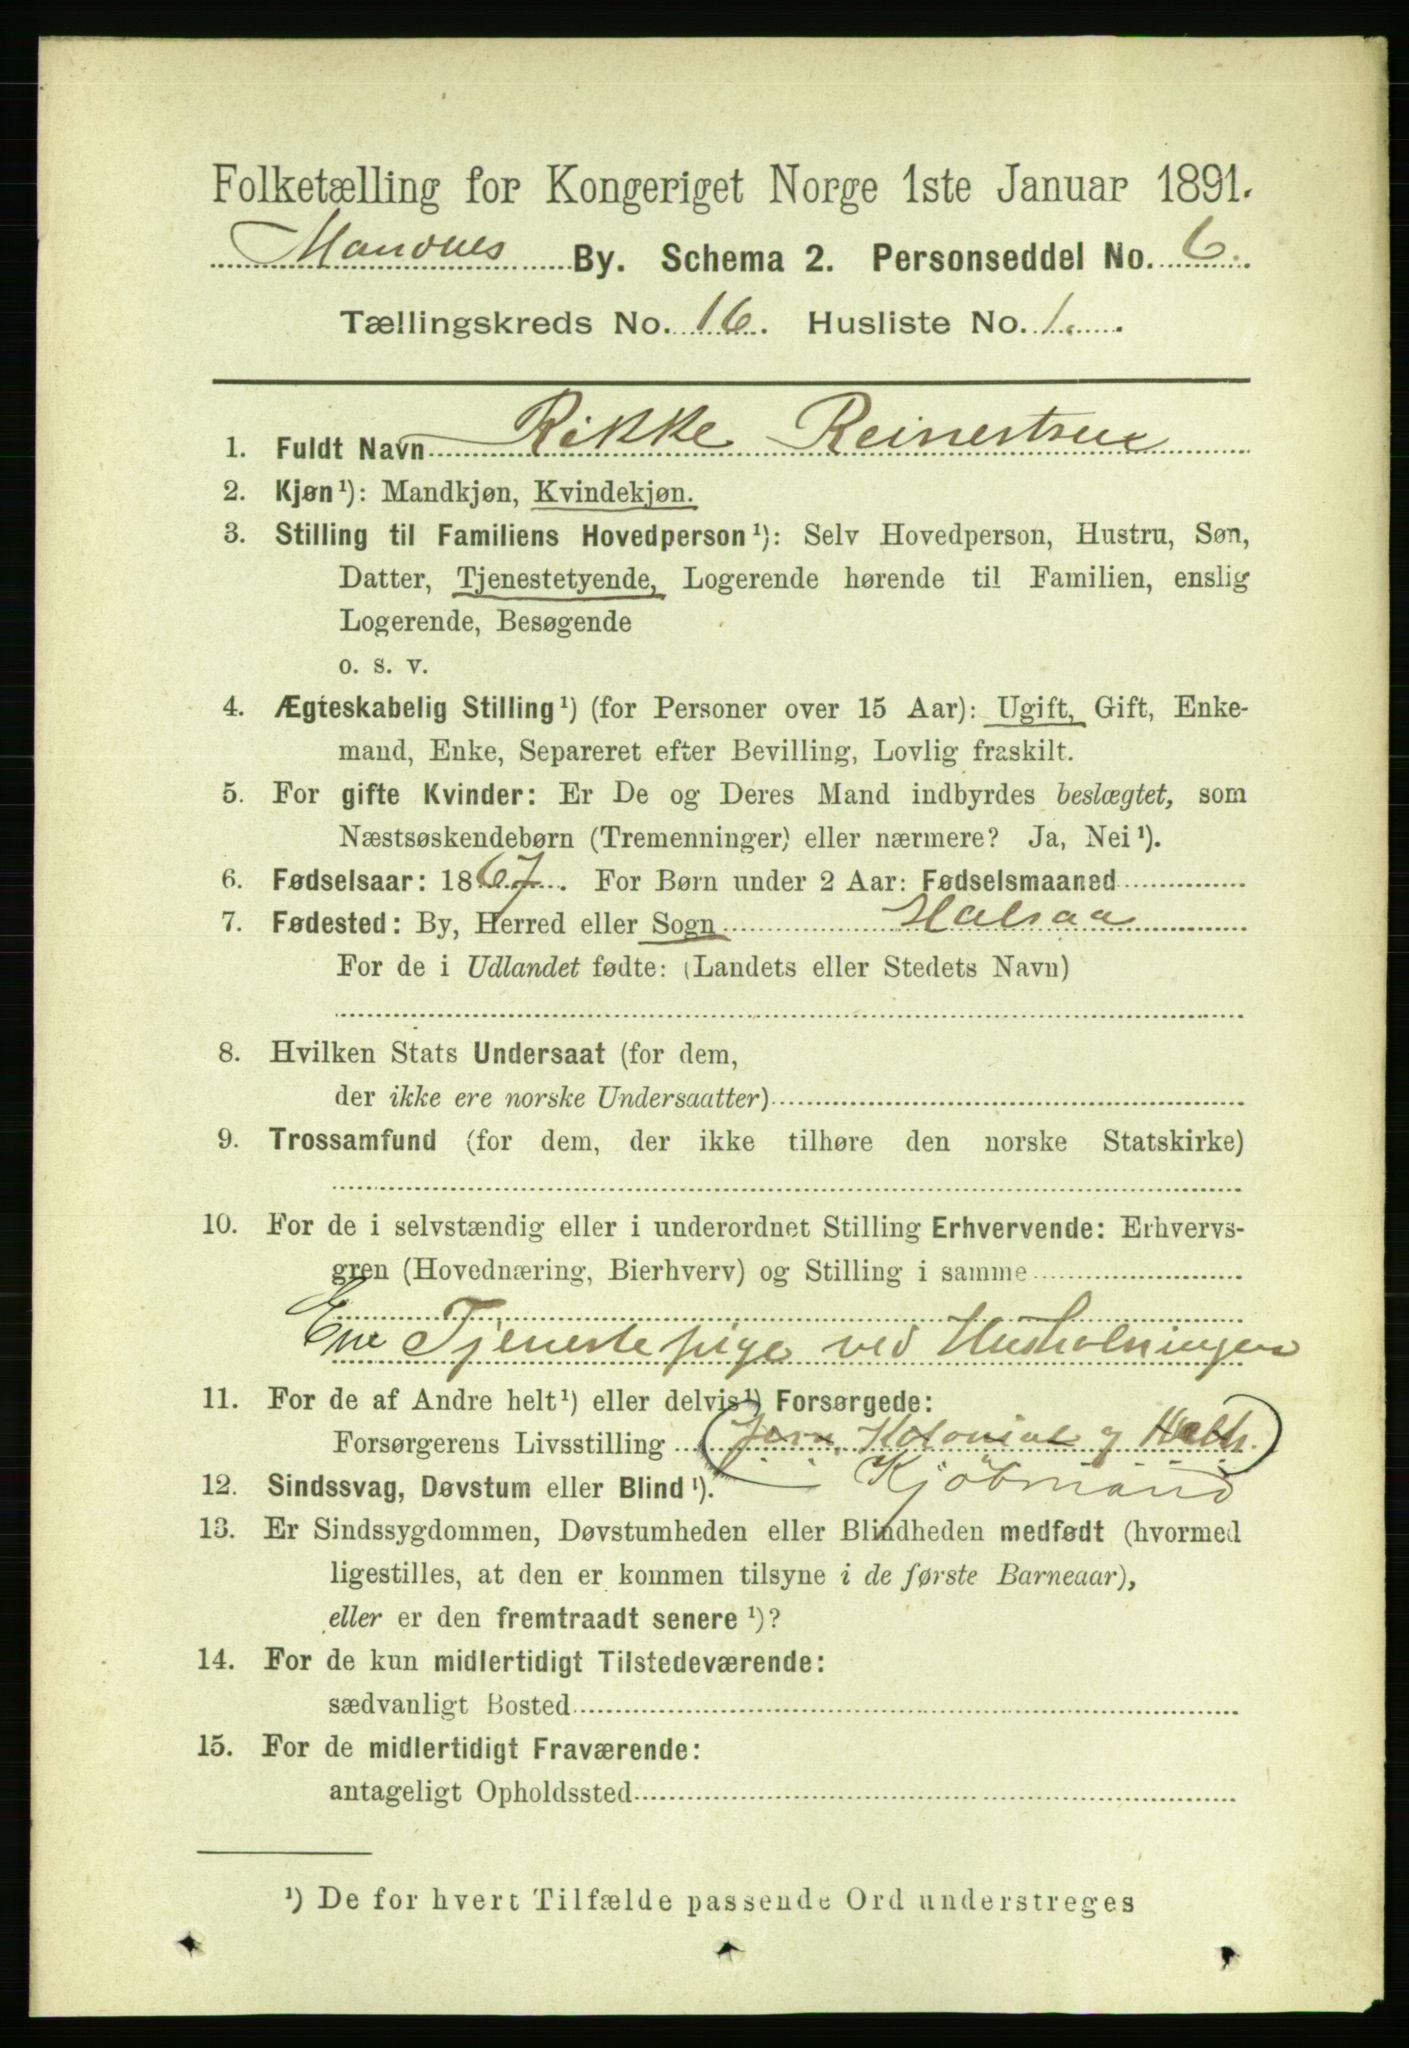 Folketælling for Kongeriget Norge 1ste Januar 1891.
By. Schema 2. Personseddel No. 6.
Tællingskreds No. 16. Husliste No. 1.
1. Fuldt Navn Rikke
2. Kjøn¹): Mandkjøn, Kvindekjøn.
3. Stilling til Familiens Hovedperson¹): Selv Hovedperson, Hustru, Søn,
Datter, Tjenestetyende, Logerende hørende til Familien, enslig
Logerende, Besøgende
o. s. v.
4. Ægteskabelig Stilling¹) (for Personer over 15 Aar): Ugift, Gift, Enke-
mand, Enke, Separeret efter Bevilling, Lovlig fraskilt.
5. For gifte Kvinder: Er De og Deres Mand indbyrdes beslægtet, som
Næstsøskendebørn (Tremenninger) eller nærmere? Ja, Nei¹).
6. Fødselsaar: 1867. For Børn under 2 Aar: Fødselsmaaned
7. Fødested: By, Herred eller Sogn Halsaa
For de i Udlandet fødte: (Landets eller Stedets Navn)
8. Hvilken Stats Undersaat (for dem,
der ikke ere norske Undersaatter)
9. Trossamfund (for dem, der ikke tilhøre den norske Statskirke)
10. For de i selvstændig eller i underordnet Stilling Erhvervende: Erhvervs-
gren (Hovednæring, Bierhverv) og Stilling i samme
Tjenestepige ved Husholningen
11. For de af Andre helt¹) eller delvis¹) Forsørgede:
Forsørgerens Livsstilling Jern, Kolonial og
Kjöbmand
12. Sindssvag, Døvstum eller Blind¹).
13. Er Sindssygdommen, Døvstumheden eller Blindheden medfødt (hvormed
ligestilles, at den er kommen tilsyne i de første Barneaar),
eller er den fremtraadt senere¹)?
14. For de kun midlertidigt Tilstedeværende:
sædvanligt Bosted
15. For de midlertidigt Fraværende:
antageligt Opholdssted
¹) De for hvert Tilfælde passende Ord understreges